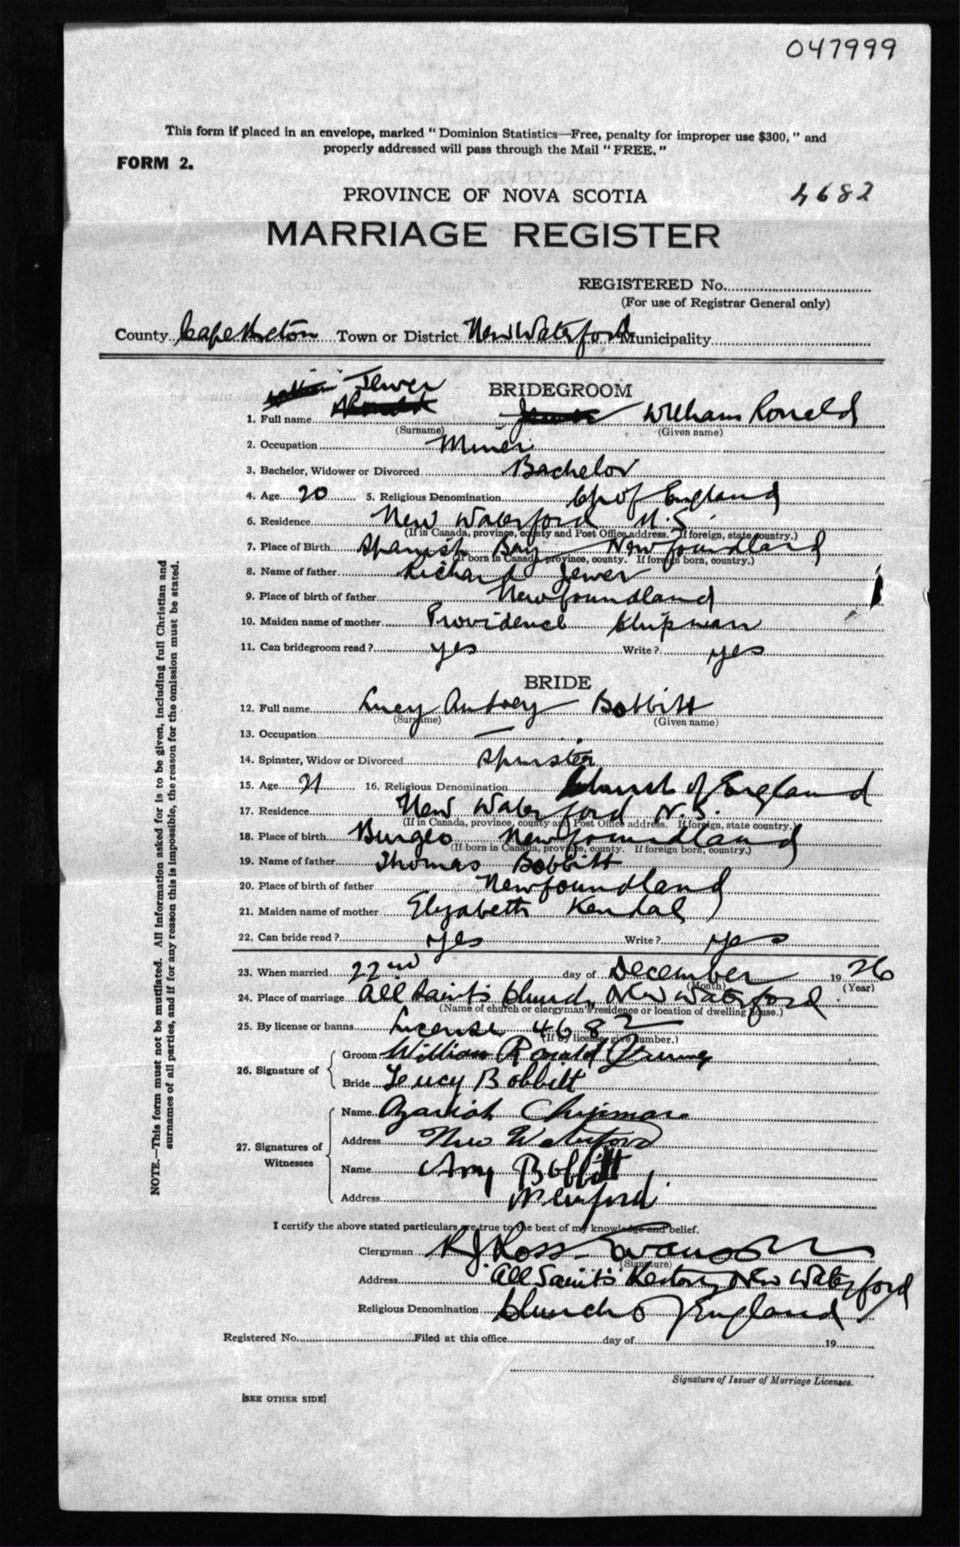 047999
This form if placed in an envelope, marked "Dominion Statistics—Free, penalty for improper use $300," and
properly addressed will pass through the Mail "FREE."
FORM 2.
PROVINCE OF NOVA SCOTIA 4682
MARRIAGE REGISTER
REGISTERED No.
(For use of Registrar General only)
County Cape Breton Town or District New Waterford Municipality
BRIDEGROOM
Jewer
1. Full name William Ronald
(Surname) (Given name)
2. Occupation Miner
3. Bachelor, Widower or Divorced Bachelor
4. Age 20 5. Religious Denomination Ch of England
6. Residence New Waterford N.S.
(If in Canada, province, county and Post Office address. If foreign, state country.)
7. Place of Birth Spanish Bay Newfoundland
(If born in Canada, province, county. If foreign born, country.)
8. Name of father Richard Jewer
9. Place of birth of father Newfoundland
10. Maiden name of mother Providence Chipman
11. Can bridegroom read? yes Write? yes
BRIDE
12. Full name Lucy Autrey Bobbitt
(Surname) (Given name)
13. Occupation —
14. Spinster, Widow or Divorced Spinster
15. Age 21 16. Religious Denomination Church of England
17. Residence New Waterford N.S.
(If in Canada, province, county and Post Office address. If foreign, state country.)
18. Place of birth Burgeo Newfoundland
(If born in Canada, province, county. If foreign born, country.)
19. Name of father Thomas Bobbitt
20. Place of birth of father Newfoundland
21. Maiden name of mother Elyzabeth Kendal
22. Can bride read? Yes Write? yes
23. When married 22nd day of December 1926
(Month) (Year)
24. Place of marriage All Saints Church, New Waterford
(Name of church or clergyman's residence or location of dwelling house.)
25. By license or banns License 4682
(If by license give number.)
26. Signature of
Groom William Ronald
Bride Lucy Bobbitt
27. Signatures of Witnesses
Name Azariah Chipman
Address New Waterford
Name Amy Bobbitt
Address
I certify the above stated particulars are true to the best of my knowledge and belief.
Clergyman R.J. Ross Swanson
(Signature)
Address All Saints Rectory New Waterford
Religious Denomination Church of England
Registered No. Filed at this office day of 19
Signature of Issuer of Marriage Licenses.
[SEE OTHER SIDE]
NOTE.—This form must not be mutilated. All information asked for is to be given, including full Christian and
surnames of all parties, and if for any reason this is impossible, the reason for the omission must be stated.